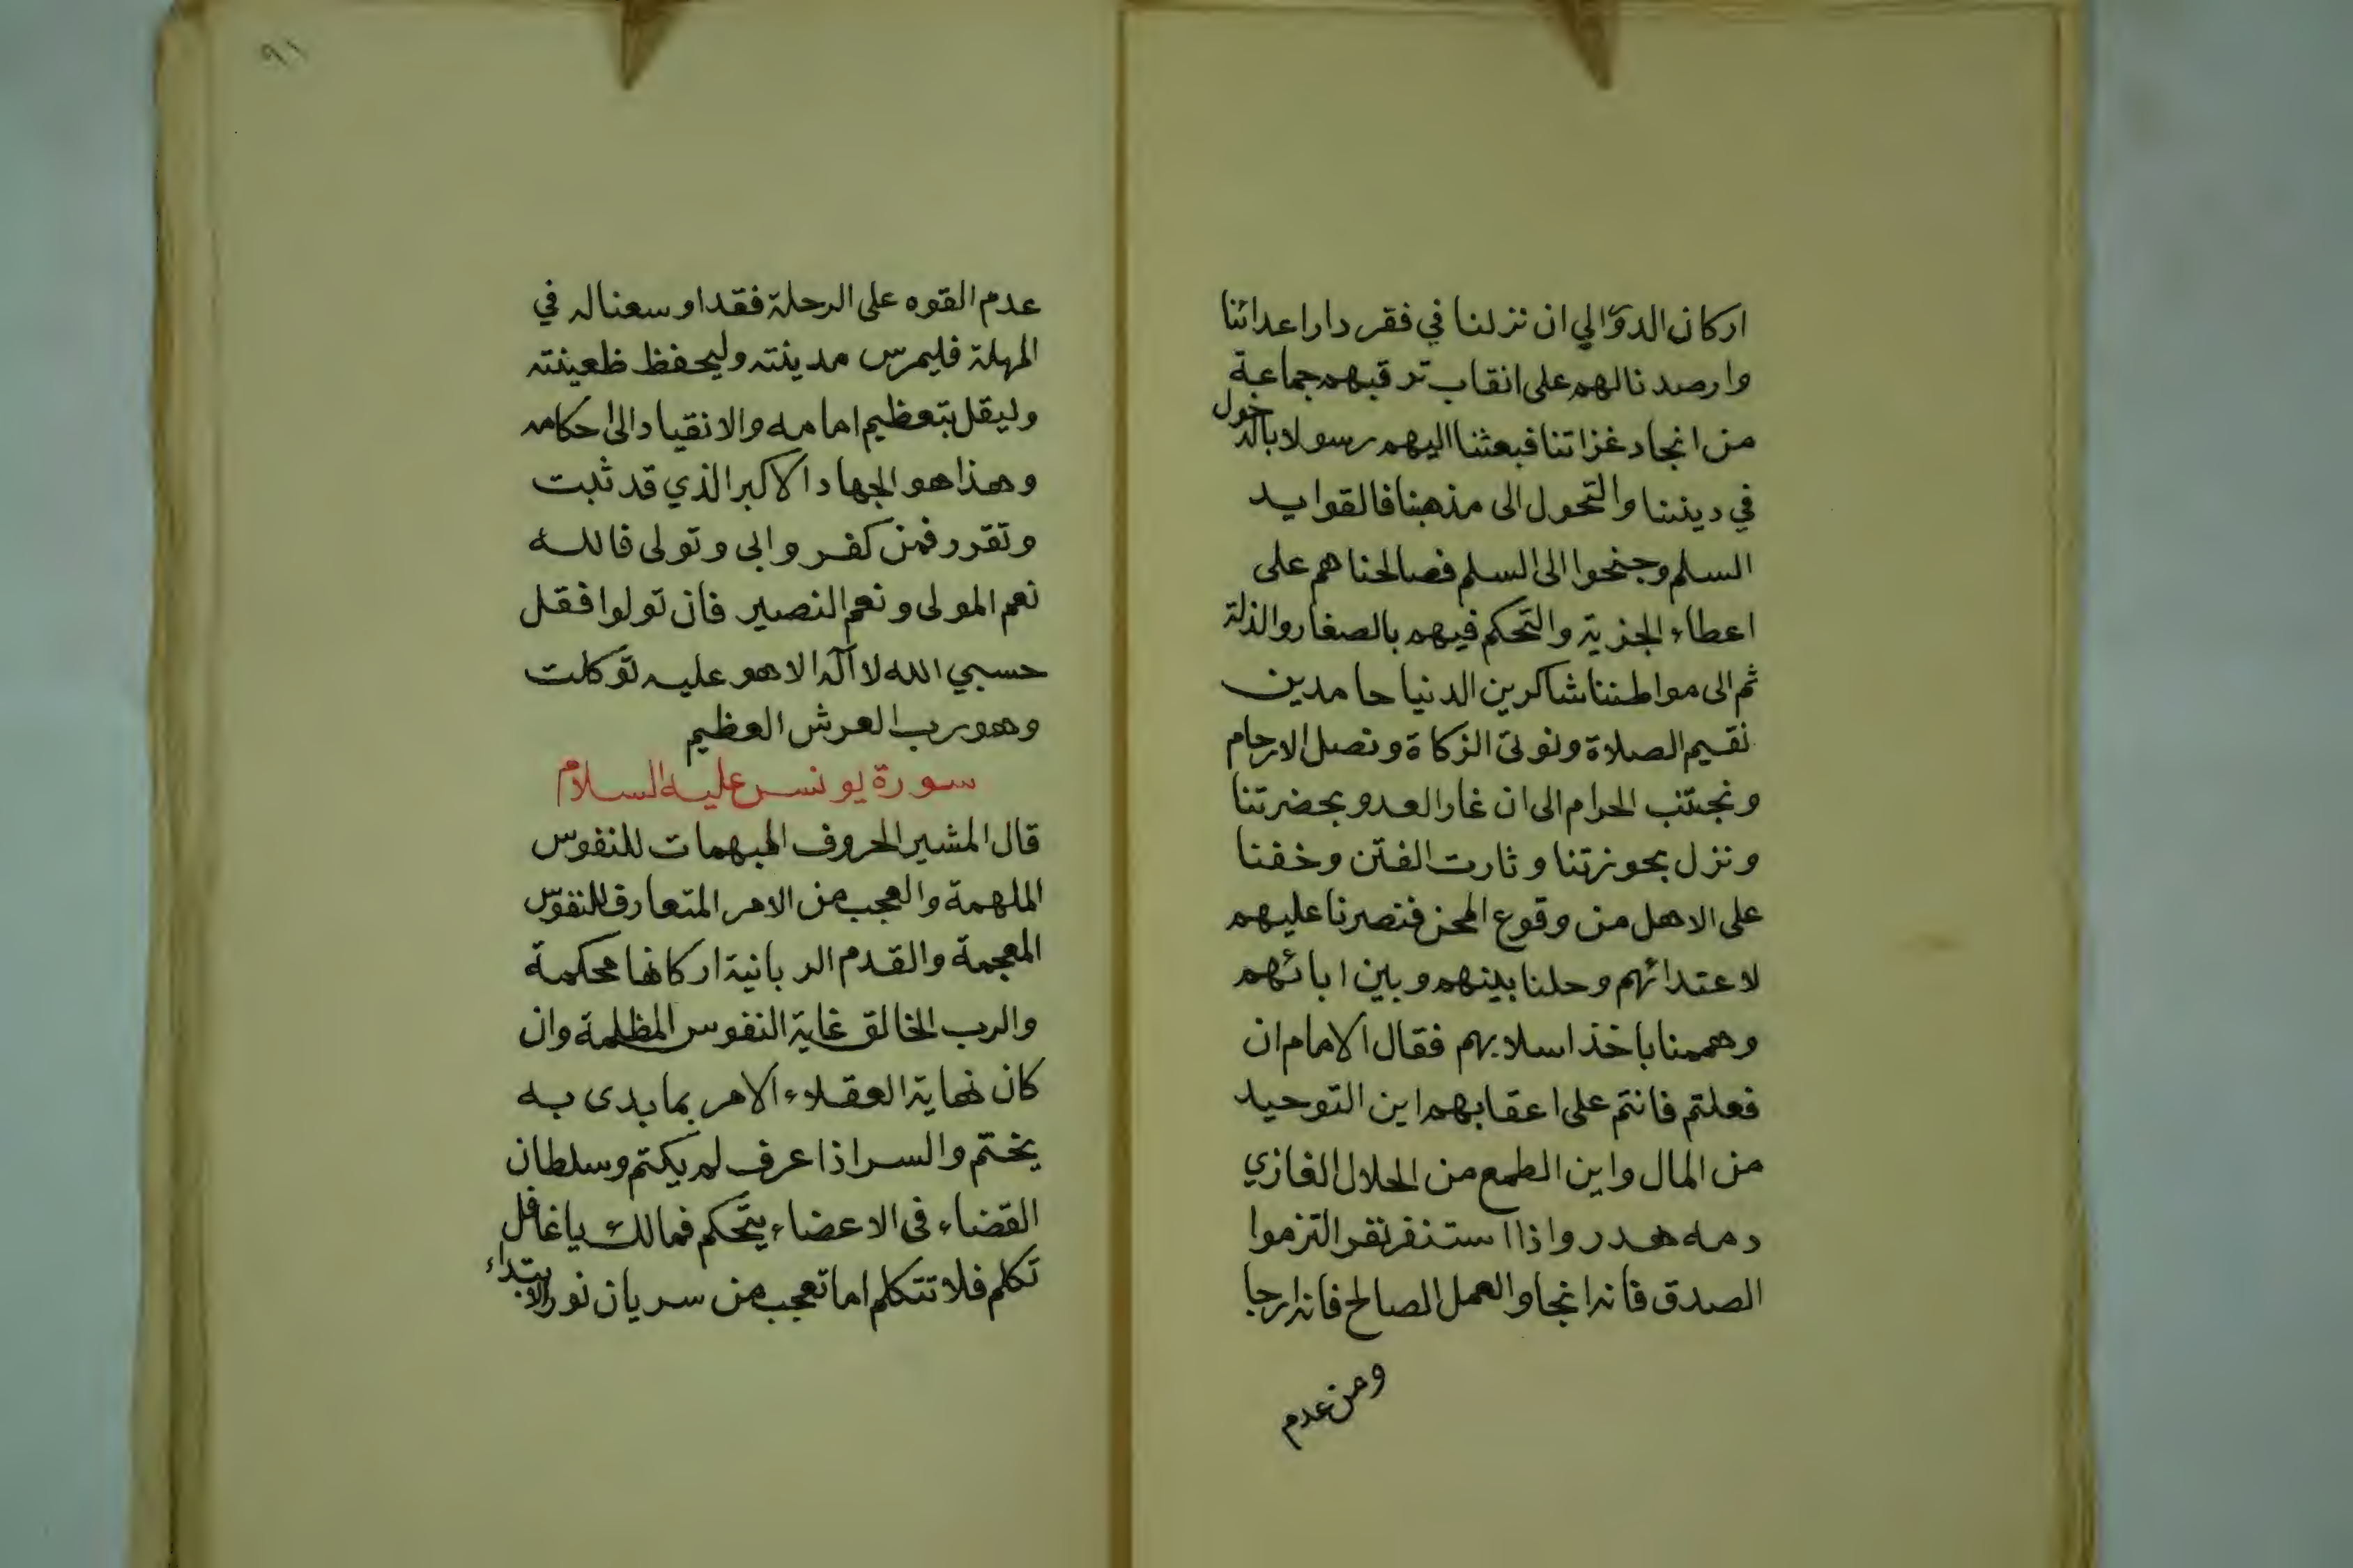 اركان الدوالي ان نزلنا في فقر دار اعدائنا
وارصدنا لهم على انقاب ترقبهم جماعة
من انجاد غزاتنا فبعثنا اليهم رسولا بالدخول
في ديننا والتحول الى مذهبنا فالقوا يد
السلم وجنحوا الى السلم فصالحناهم على
اعطاء الجزية والتحكم فيهم بالصغار والذلة
ثم الى مواطننا شاكرين الدنيا حامدين
نقيم الصلاة ونوتى الزكاة ونصل الارحام
ونجتنب الحرام الى ان غار العدو بحضرتنا
ونزل بحوزتنا وثارت الفتن وخفنا
على الاهل من وقوع المحن فنصرنا عليهم
لاعتدائهم وحلنا بينهم وبين ابائهم
وهممنا باخذ اسلابهم فقال الامام ان
فعلتم فانتم على اعقابهم اين التوحيد
من المال واين الطمع من الحلال الغازي
دمه هدر واذا استنفر نفر التزموا
الصدق فانه انجا والعمل الصالح فانه ارجا
ومن عدم
٩١
عدم القوه على الرحلة فقد اوسعنا له في
المهلة فليمرس مدينته وليحفظ ظعينته
وليقل بتعظيم امامه والانقياد الى احكامه
وهذا هو الجهاد الاكبر الذي قد ثبت
وتقرر فمن كفر وابى وتولى فالله
نعم المولى ونعم النصير فان تولوا فقل
حسبي الله لا اله الا هو عليه توكلت
وهو رب العرش العظيم
سورة يونس عليه السلام
قال المشير الحروف المبهمات للنفوس
الملهمة والعجب من الامر المتعارف للنفوس
المعجمة والقدم الربانية اركانها محكمة
والرب الخالق غاية النفوس المظلمة وان
كان نهاية العقلاء الامر بما بدى به
يختم والسر اذا عرف لم يكتم وسلطان
القضاء فى الاعضاء يتحكم فمالك ياغافل
تكلم فلا تتكلم اما تعجب من سريان نور الابتداء